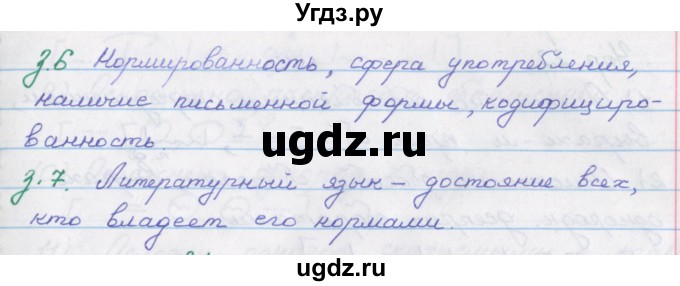 Угдз.ру
з.6 Нормированность, сфера употребления,
наличие письменной формы, кодифициро-
ванность.
ugdz.ru
з.7. Литературный язык – достояние всех,
кто владеет его нормами.
ugdz.ru